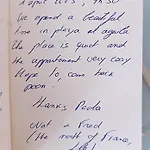 We spend a beautiful
time in playa el aguila
the place is quiet and
the appartement very cosy
Hope to come back
soon!
Thanks Paola
Nat & Fred
/ the north of France,